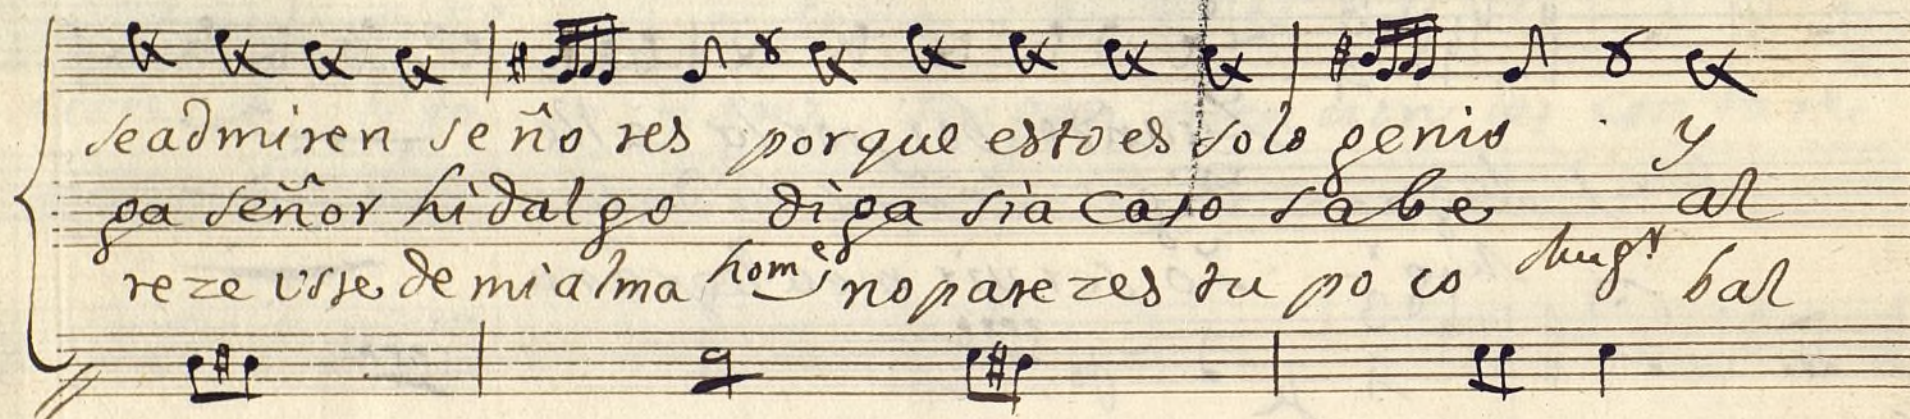 seadmiren se ño res porque esto es solo genio y
ga señor hidalgo diga sia caso sabe al
reze usse de mi alma hom.e no parezes tu poco Mug.r bal